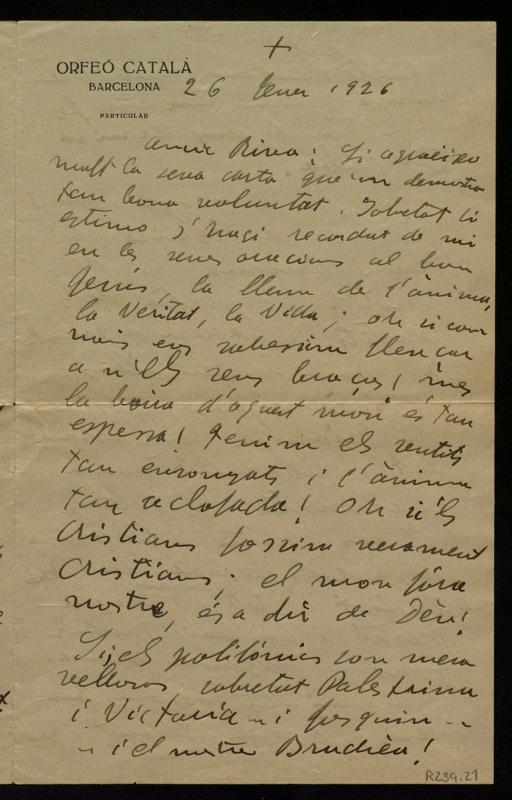 +
ORFEÓ CATALÀ
BARCELONA
PARTICULAR
26 Gener 1926
Amic Riera: Li agraeixo
molt la seva carta que'm demostra
tan bona voluntat. Sobretot li
estimo s'hagi recordat de mi
en les seves oracions al bon
Jesús, la llum de l'ànima,
la Veritat, la Vida; oh si com
nois ens sabessim llençar
a n'els seus braços! mes
la boira d'aquest mon és tan
espessa! Tenim els sentits
tan enronyats i l'ànima
tan aclofada! Oh si'ls
Cristians fossim verament
Cristians; el mon fóra
nostre, és a dir de Déu!
Si; els polifónics son mera
vellosos sobretot Palestrina
i Victoria - i Josquin - -
- i el nostre Brudieu!
R239.21